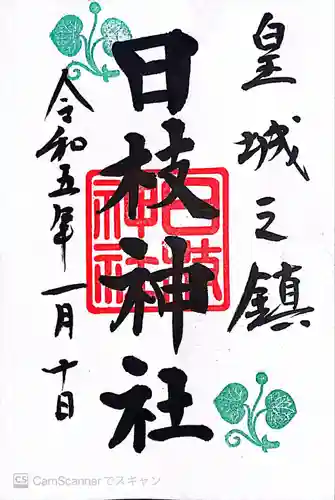 皇城之鎮
日枝神社
日枝神社
令和五年一月十日
CS CamScannerでスキャン